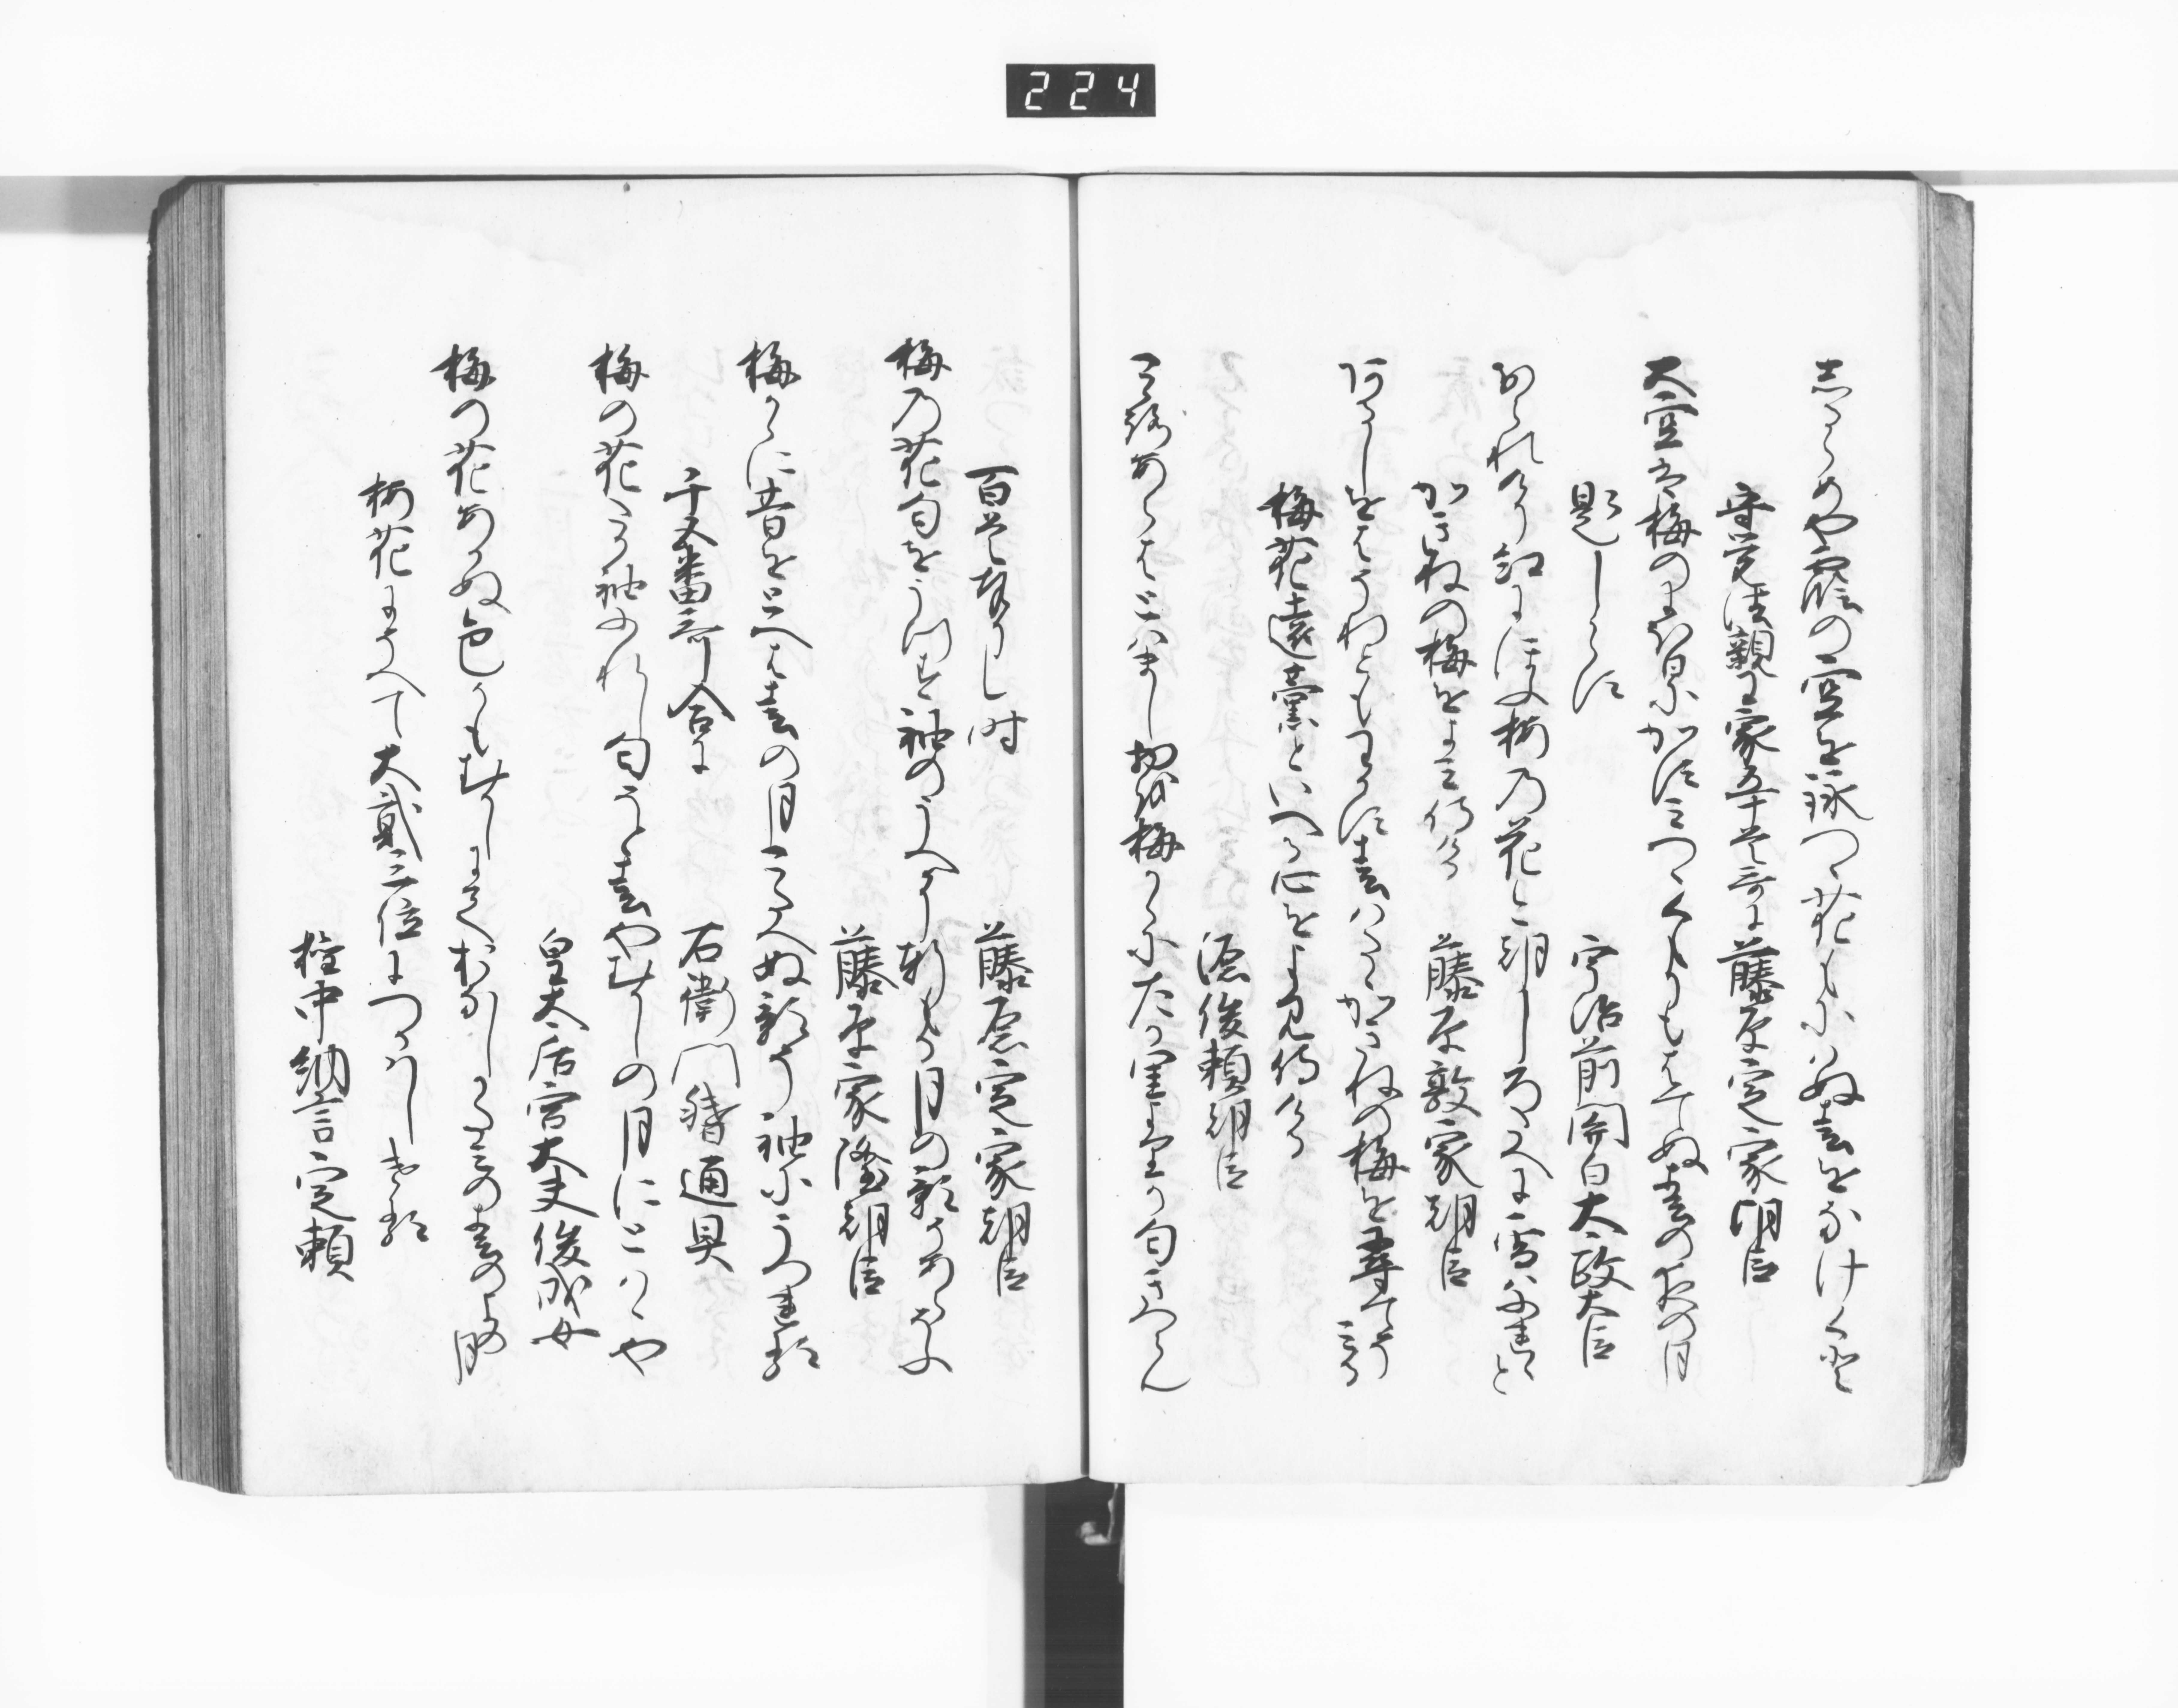 224
志るらめや霞の空を詠つゝ花もにほはぬ春をなけくと
守覚法親王家五十首哥に 藤原定家朝臣
大空は梅のにほひにかすみつゝくもりもはてぬ春の夜の月
題しらす 宇治前関白太政大臣
おられけり紅にほふ梅乃花今朝しろたへに雪はふれゝと
かきねの梅をよミ侍ける 藤原敦家朝臣
あるしをはたれともわかす春はたゝかきねの梅を尋てそみる
梅花遠薫といへる心をよみ侍ける
源俊頼朝臣
心あらはとはまし物を梅かゝにたか里よりか匂きつらん
百首奉りし時 藤原定家朝臣
梅乃花匂をうつす袖のうへに軒もる月の影そあらそふ
藤原家隆朝臣
梅かゝに昔をとへは春の月こたへぬ影そ袖にうつれる
千五百番哥合に 右衛門督通具
梅の花たか袖ふれし匂そと春やむかしの月にとはゝや
皇太后宮大夫俊成女
梅の花あかぬ色かもむかしにておなしかたみの春のよの月
梅花にそへて大貳三位につかはしける
権中納言定頼